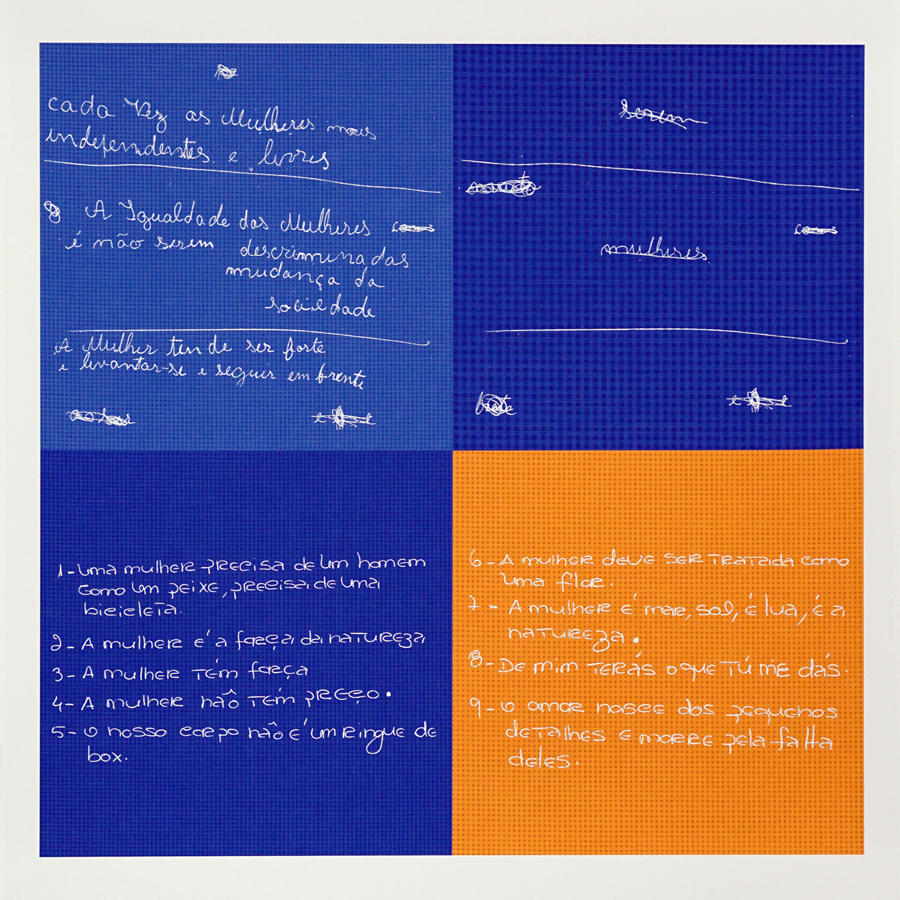 cada Vez as Mulheres mais
independentes e livres
A Igualdade das Mulheres
é não serem descriminadas
mudança da
sociedade
A Mulher tem de ser forte
e levantar-se e seguir em frente
serem
mulheres
1-uma mulher precisa de um homem
como um peixe, precisa de uma
bicicleta.
2-A mulher é a força da natureza
3-A mulher tém força
4-A mulher não tém preço.
5-o nosso corpo não é um ringue de
box.
6-A mulher deve ser tratada como
uma flor.
7-A mulher é mar, sol, é lua, é a
natureza.
8-De mim terás o que tú me dás.
9-o amor nasce dos pequenos
detalhes e morre pela falta
deles.